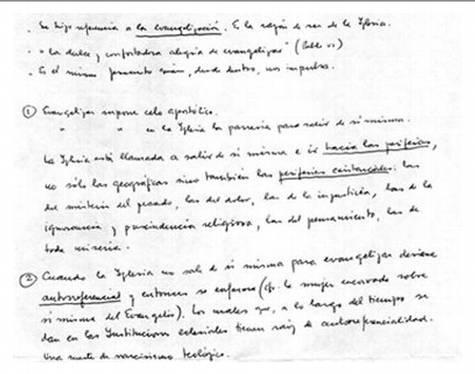 . Se hizo referencia a la evangelización. Es la razón de ser de la Iglesia.
. "la dulce y confortadora alegría de evangelizar" (Pablo VI)
. Es el mismo Jesucristo quien, desde dentro, nos impulsa.
① Evangelizar supone celo apostólico.
" " en la Iglesia la parresía para salir de sí misma.
La Iglesia está llamada a salir de sí misma e ir hacia las periferias,
no sólo las geográficas sino también las periferias existenciales: las
del misterio del pecado, las del dolor, las de la injusticia, las de la
ignorancia y prescindencia religiosa, las del pensamiento, las de
toda miseria.
② Cuando la Iglesia no sale de sí misma para evangelizar deviene
autorreferencial y entonces se enferma (cfr. la mujer encorvada sobre
sí misma del Evangelio). Los males que, a lo largo del tiempo, se
dan en las Instituciones eclesiales tienen raíz de autorreferencialidad.
Una suerte de narcisismo teológico.